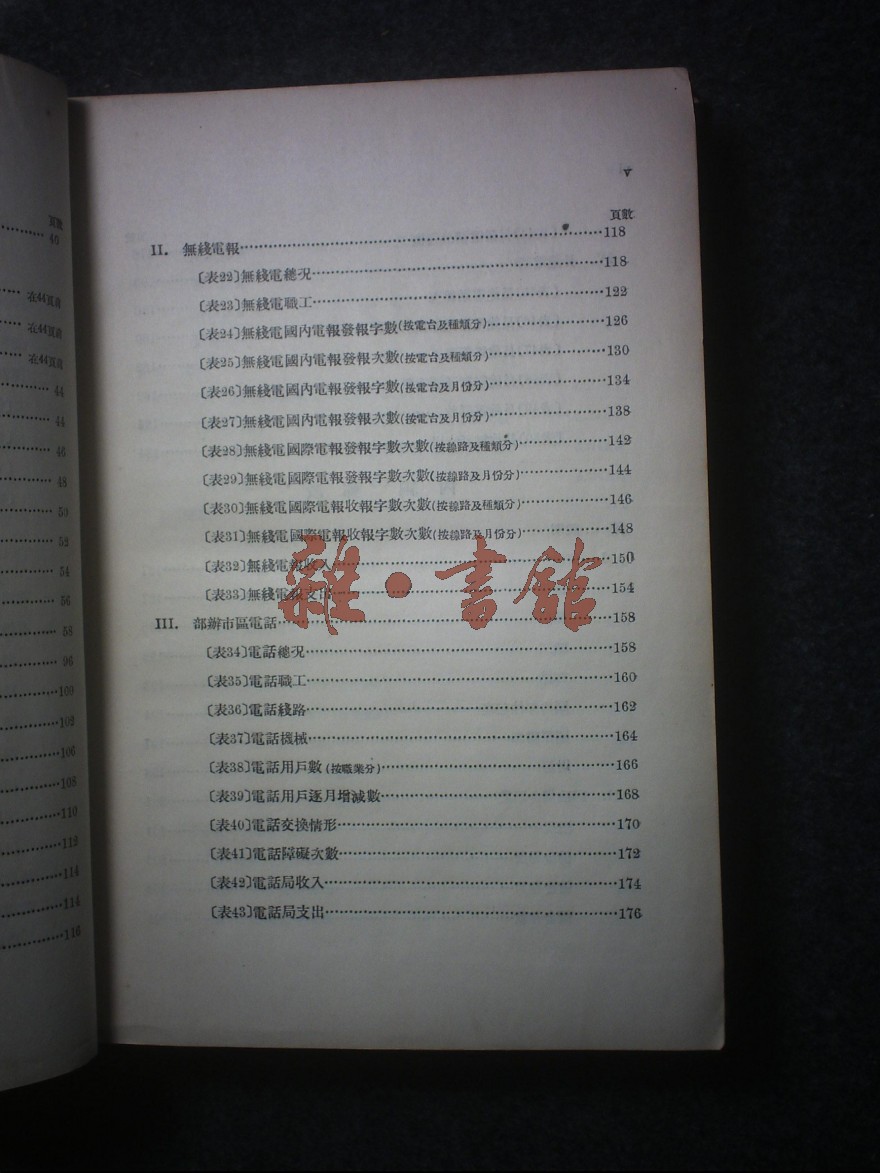 頁數
40
在44頁前
在44頁前
在44頁前
44
44
46
48
50
52
54
56
58
96
100
102
106
108
110
112
114
114
116
v
頁數
II. 無綫電報118
〔表22〕無綫電總況118
〔表23〕無綫電職工122
〔表24〕無綫電國內電報發報字數(按電台及種類分)126
〔表25〕無綫電國內電報發報次數(按電台及種類分)130
〔表26〕無綫電國內電報發報字數(按電台及月份分)134
〔表27〕無綫電國內電報發報次數(按電台及月份分)138
〔表28〕無綫電國際電報發報字數次數(按線路及種類分)142
〔表29〕無綫電國際電報發報字數次數(按線路及月份分)144
〔表30〕無綫電國際電報收報字數次數(按線路及種類分)146
〔表31〕無綫電國際電報收報字數次數(按線路及月份分)148
〔表32〕無綫電報收入150
〔表33〕無綫電報支出154
雜·書館
III. 部辦市區電話158
〔表34〕電話總況158
〔表35〕電話職工160
〔表36〕電話綫路162
〔表37〕電話機械164
〔表38〕電話用戶數(按職業分)166
〔表39〕電話用戶逐月增減數168
〔表40〕電話交換情形170
〔表41〕電話障礙次數172
〔表42〕電話局收入174
〔表43〕電話局支出176